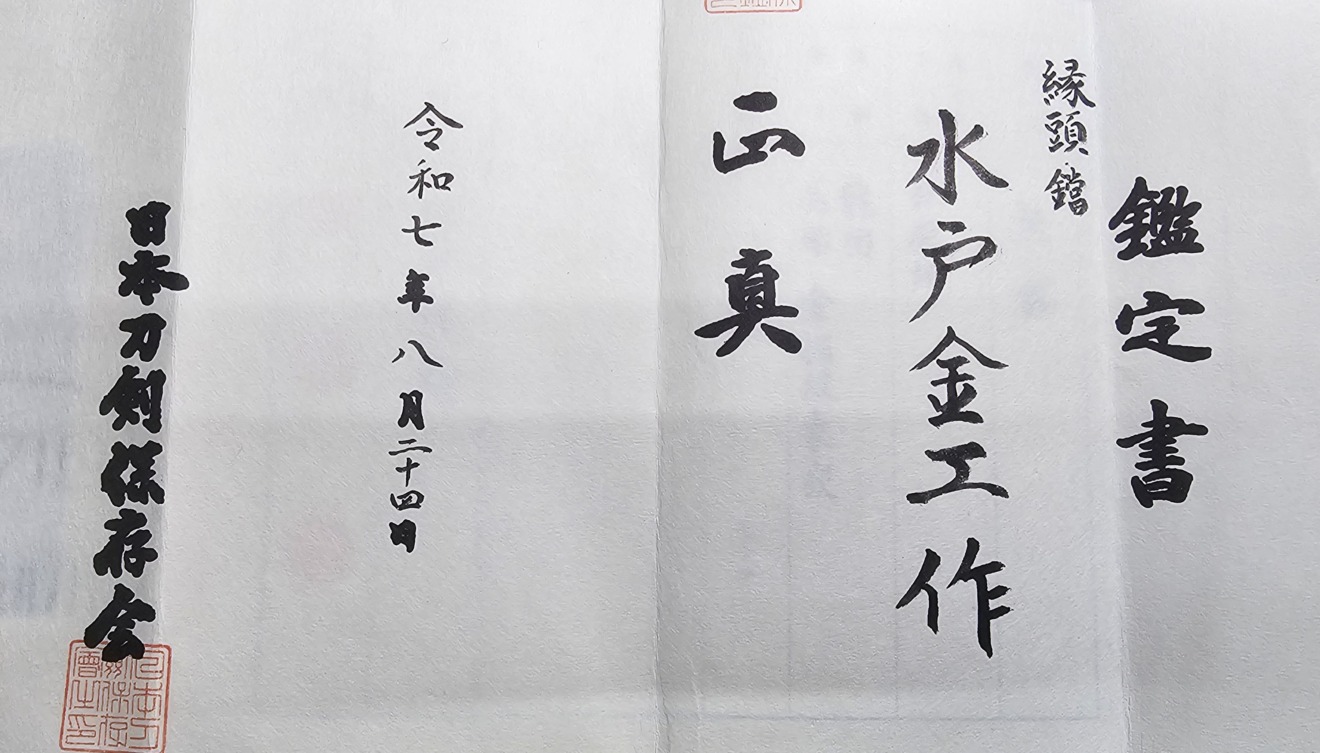 鑑定書
縁頭 鐺
水戸金工作
正真
令和七年八月二十四日
日本刀剣保存会